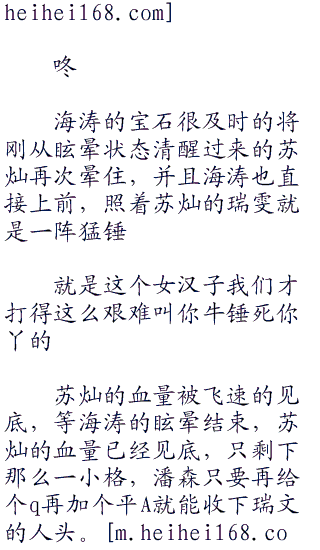 heihei168.com]
咚
海涛的宝石很及时的将
刚从眩晕状态清醒过来的苏
灿再次晕住，并且海涛也直
接上前，照着苏灿的瑞雯就
是一阵猛锤
就是这个女汉子我们才
打得这么艰难叫你牛锤死你
丫的
苏灿的血量被飞速的见
底，等海涛的眩晕结束，苏
灿的血量已经见底，只剩下
那么一小格，潘森只要再给
个q再加个平A就能收下瑞文
的人头。[m.heihei168.co